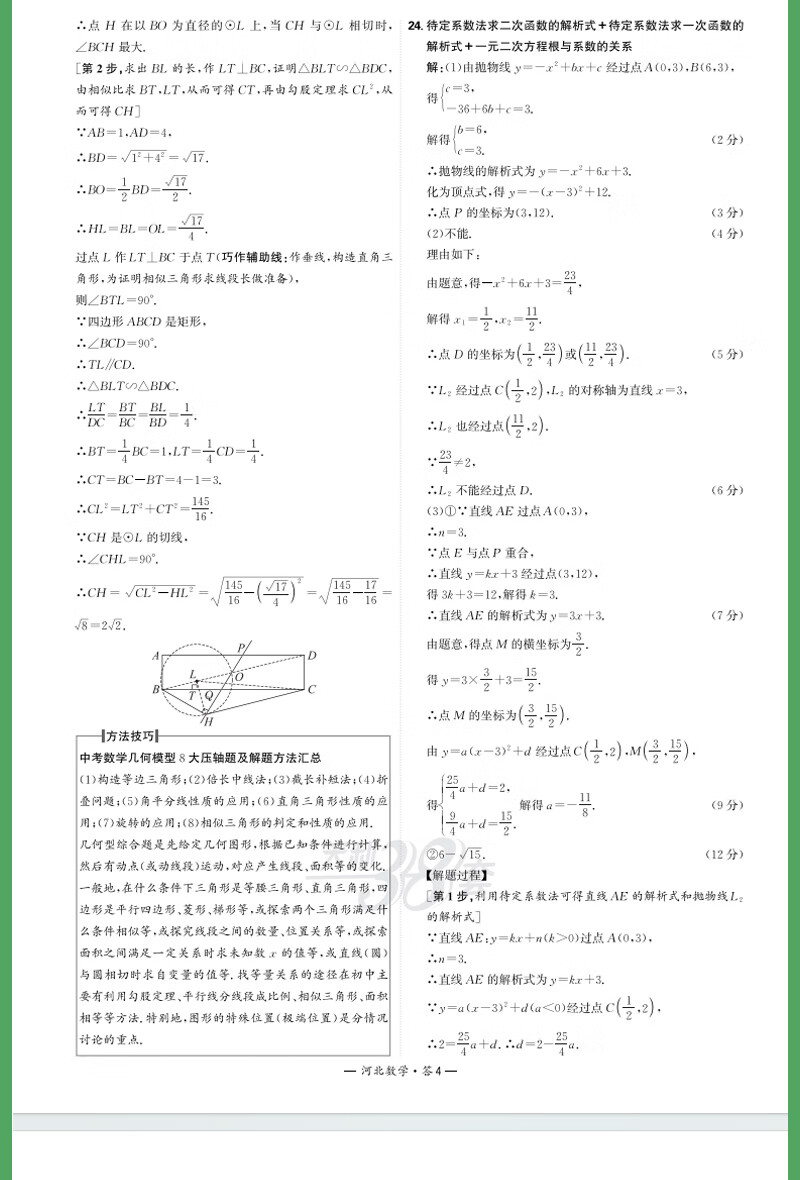 ∴点 H 在以 BO 为直径的⊙L 上,当 CH 与⊙L 相切时,
∠BCH 最大.
[第 2 步,求出 BL 的长,作 LT⊥BC,证明△BLT∽△BDC,
由相似比求 BT,LT,从而可得 CT,再由勾股定理求 CL²,从
而可得 CH]
∵AB=1,AD=4,
∴BD=√(1²+4²)=√17.
∴BO=1/2BD=√17/2.
∴HL=BL=OL=√17/4.
过点 L 作 LT⊥BC 于点 T(巧作辅助线:作垂线,构造直角三
角形,为证明相似三角形求线段长做准备),
则∠BTL=90°.
∵四边形 ABCD 是矩形,
∴∠BCD=90°.
∴TL∥CD.
∴△BLT∽△BDC.
∴LT/DC=BT/BC=BL/BD=1/4.
∴BT=1/4BC=1,LT=1/4CD=1/4.
∴CT=BC-BT=4-1=3.
∴CL²=LT²+CT²=145/16.
∵CH 是⊙L 的切线,
∴∠CHL=90°.
∴CH=√(CL²-HL²)=√(145/16-(√17/4)²)=√(145/16-17/16)=
√8=2√2.
P
A D
L O
B T Q C
H
方法技巧
中考数学几何模型 8 大压轴题及解题方法汇总
(1)构造等边三角形;(2)倍长中线法;(3)截长补短法;(4)折
叠问题;(5)角平分线性质的应用;(6)直角三角形性质的应
用;(7)旋转的应用;(8)相似三角形的判定和性质的应用.
几何型综合题是先给定几何图形,根据已知条件进行计算,
然后有动点(或动线段)运动,对应产生线段、面积等的变化.
一般地,在什么条件下三角形是等腰三角形、直角三角形,四
边形是平行四边形、菱形、梯形等,或探索两个三角形满足什
么条件相似等,或探究线段之间的数量、位置关系等,或探索
面积之间满足一定关系时求未知数 x 的值等,或直线(圆)
与圆相切时求自变量的值等.找等量关系的途径在初中主
要有利用勾股定理、平行线分线段成比例、相似三角形、面积
相等等方法.特别地,图形的特殊位置(极端位置)是分情况
讨论的重点.
24.待定系数法求二次函数的解析式+待定系数法求一次函数的
解析式+一元二次方程根与系数的关系
解:(1)由抛物线 y=-x²+bx+c 经过点 A(0,3),B(6,3),
得{c=3,
-36+6b+c=3.
解得{b=6,
c=3. (2 分)
∴抛物线的解析式为 y=-x²+6x+3.
化为顶点式,得 y=-(x-3)²+12.
∴点 P 的坐标为(3,12). (3 分)
(2)不能. (4 分)
理由如下:
由题意,得-x²+6x+3=23/4,
解得 x₁=1/2,x₂=11/2.
∴点 D 的坐标为(1/2,23/4)或(11/2,23/4). (5 分)
∵L₂ 经过点 C(1/2,2),L₂ 的对称轴为直线 x=3,
∴L₂ 也经过点(11/2,2).
∵23/4≠2,
∴L₂ 不能经过点 D. (6 分)
(3)①∵直线 AE 过点 A(0,3),
∴n=3.
∵点 E 与点 P 重合,
∴直线 y=kx+3 经过点(3,12),
得 3k+3=12,解得 k=3.
∴直线 AE 的解析式为 y=3x+3. (7 分)
由题意,得点 M 的横坐标为3/2.
得 y=3×3/2+3=15/2.
∴点 M 的坐标为(3/2,15/2).
由 y=a(x-3)²+d 经过点 C(1/2,2),M(3/2,15/2),
得{25/4a+d=2,
9/4a+d=15/2. 解得 a=-11/8. (9 分)
②6-√15. (12 分)
【解题过程】
[第 1 步,利用待定系数法可得直线 AE 的解析式和抛物线 L₂
的解析式]
∵直线 AE:y=kx+n(k>0)过点 A(0,3),
∴n=3.
∴直线 AE 的解析式为 y=kx+3.
∵y=a(x-3)²+d(a<0)经过点 C(1/2,2),
∴2=25/4a+d.∴d=2-25/4a.
— 河北数学·答 4 —